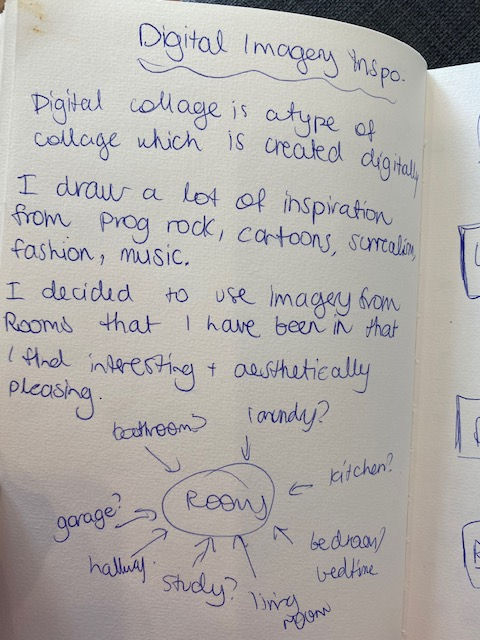 Digital Imagery Inspo.
Digital collage is a type of
collage which is created digitally
I draw a lot of inspiration
from prog rock, cartoons, surrealism,
fashion, music.
I decided to use Imagery from
Rooms that I have been in that
I find interesting + aesthetically
pleasing.
bathroom?
laundry?
kitchen?
Rooms
garage?
bedroom/
bedtime
hallway.
study?
living
room